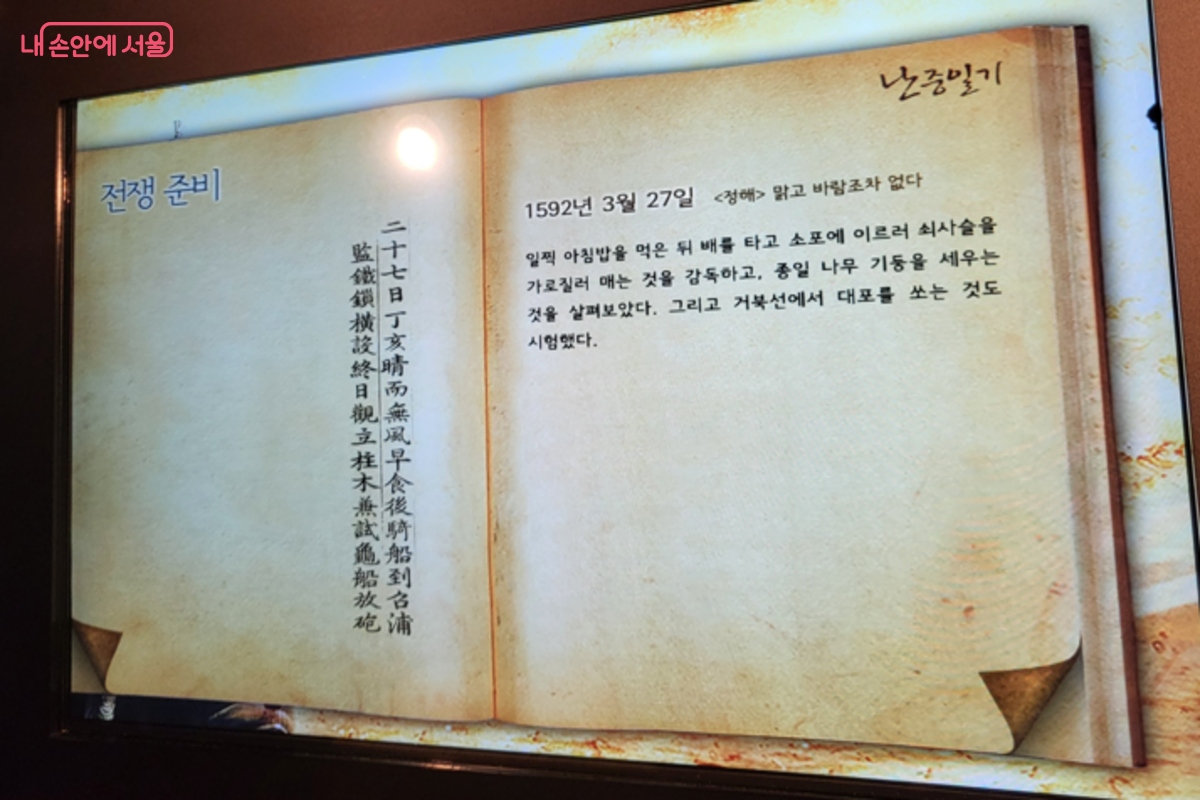 내 손안에 서울
난중일기
전쟁 준비
二十七日丁亥晴而無風早食後騎船到召浦
監鐵鎖橫設終日觀立柱木兼試龜船放砲
1592년 3월 27일 <정해> 맑고 바람조차 없다
일찍 아침밥을 먹은 뒤 배를 타고 소포에 이르러 쇠사슬을
가로질러 매는 것을 감독하고, 종일 나무 기둥을 세우는
것을 살펴보았다. 그리고 거북선에서 대포를 쏘는 것도
시험했다.